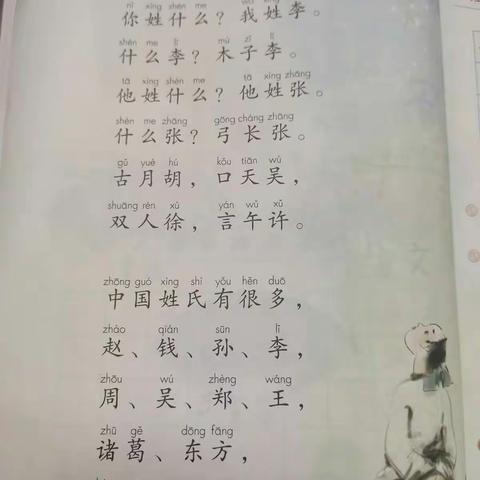 nǐ xìng shén me wǒ xìng lǐ
你姓什么？我姓李。
shén me lǐ mù zǐ lǐ
什么李？木子李。
tā xìng shén me tā xìng zhāng
他姓什么？他姓张。
shén me zhāng gōng cháng zhāng
什么张？弓长张。
gǔ yuè hú kǒu tiān wú
古月胡，口天吴，
shuāng rén xú yán wǔ xǔ
双人徐，言午许。
zhōng guó xìng shì yǒu hěn duō
中国姓氏有很多，
zhào qián sūn lǐ
赵、钱、孙、李，
zhōu wú zhèng wáng
周、吴、郑、王，
zhū gě dōng fāng
诸葛、东方，